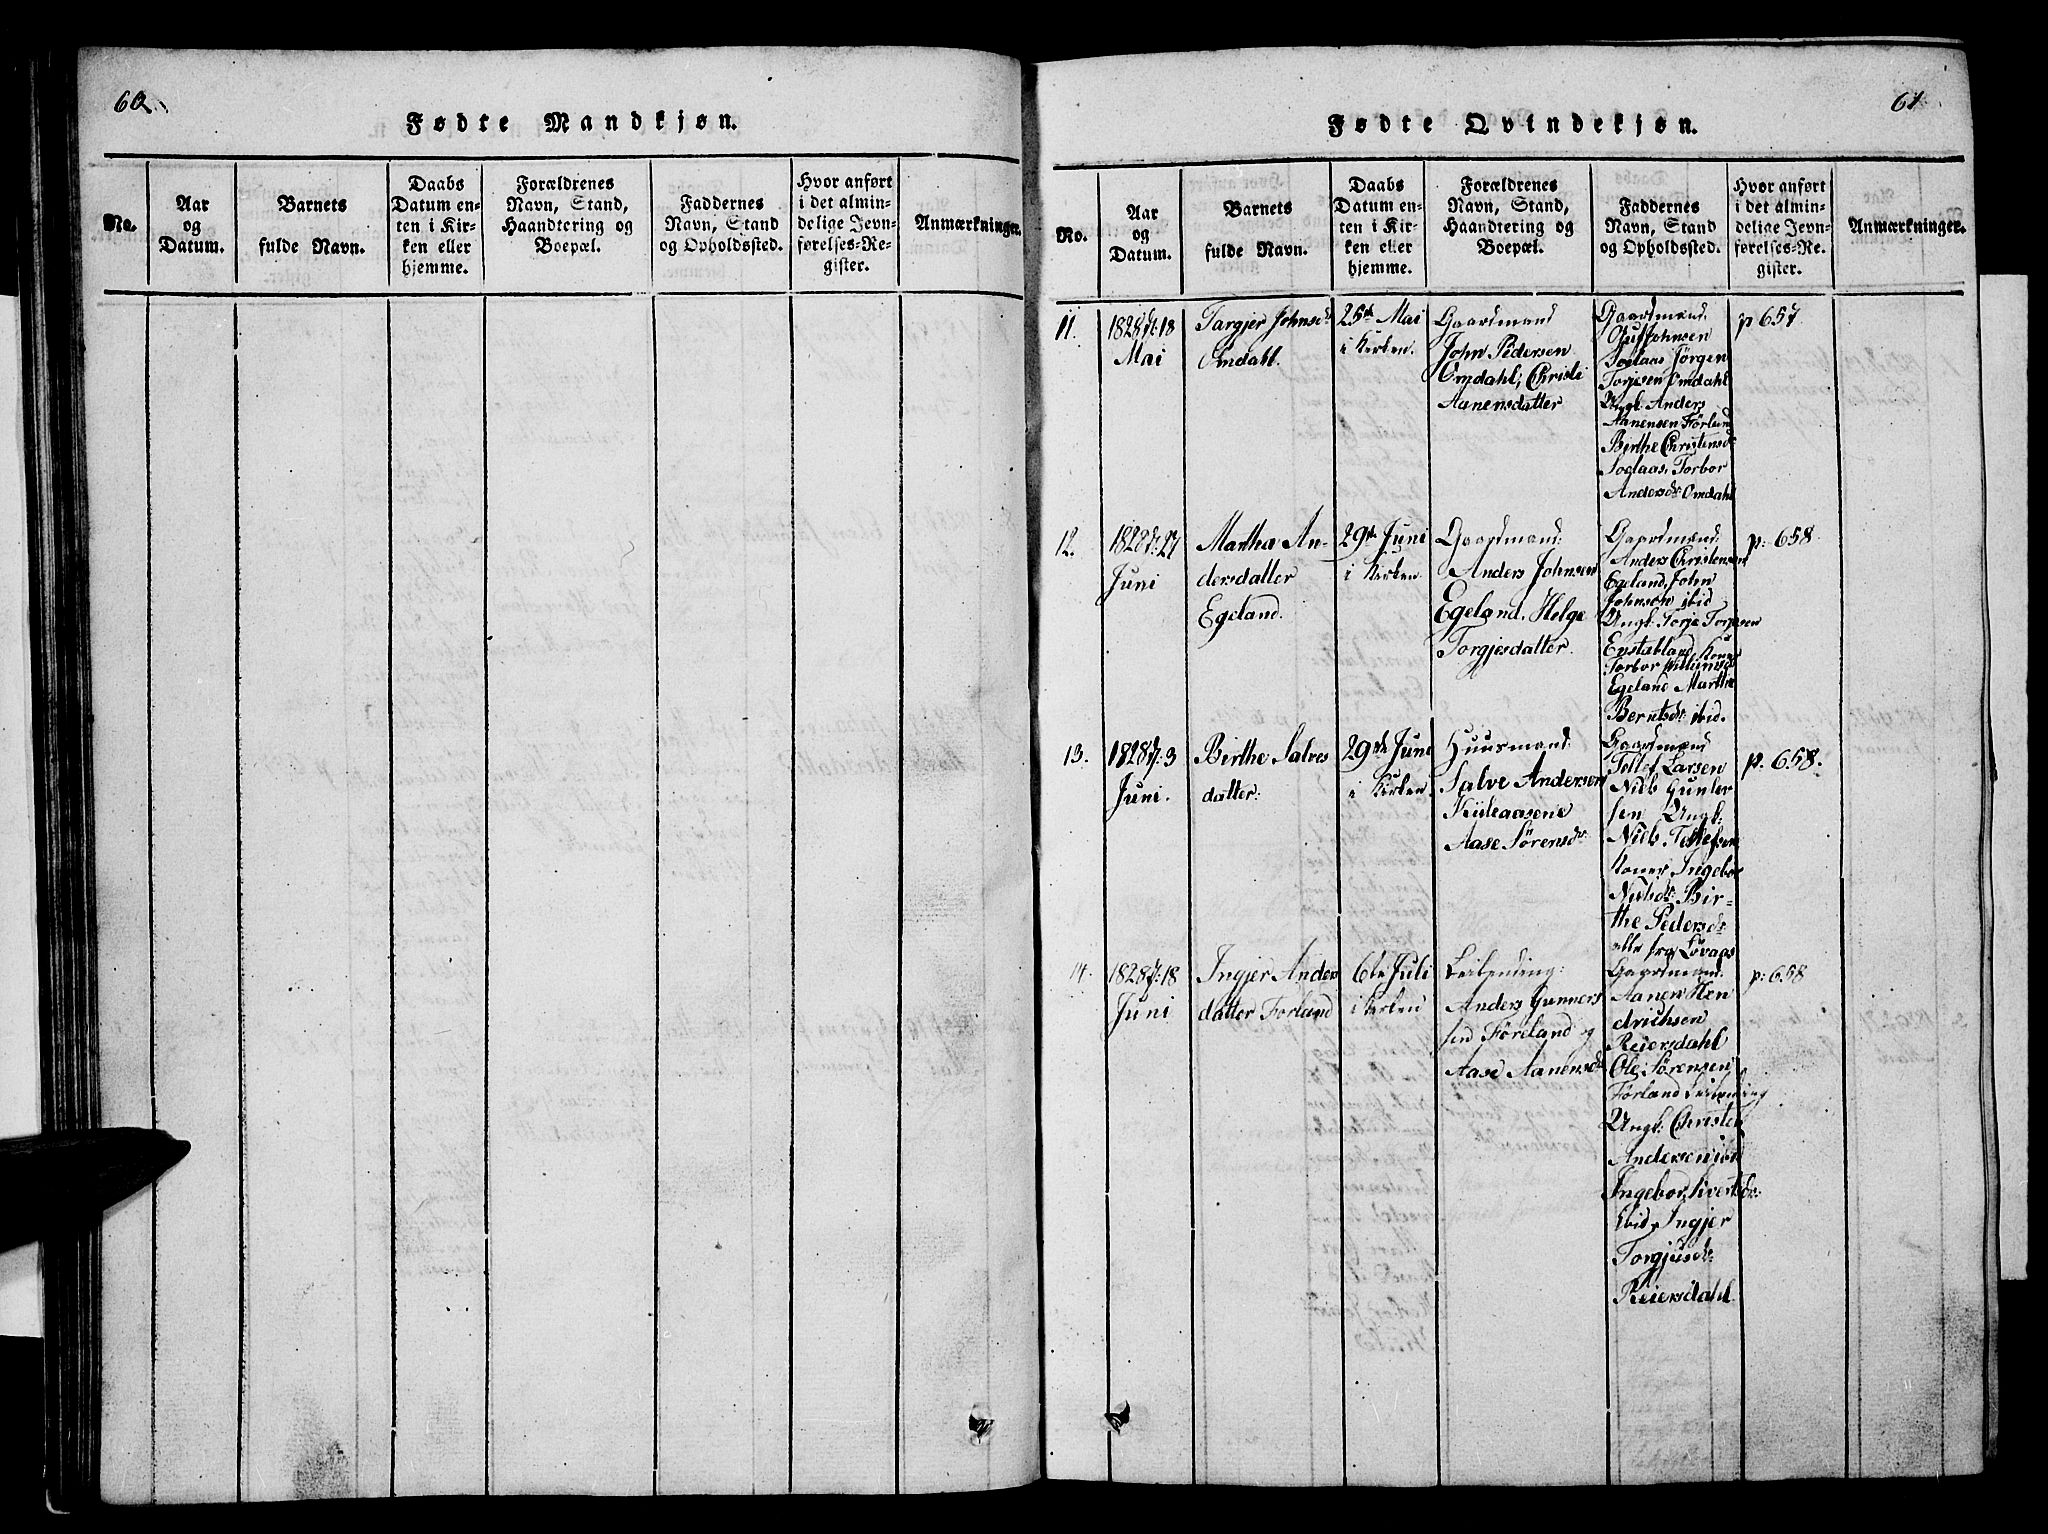 60.
Fødte Mandkjøn.
No.
Aar
og
Datum.
Barnets
fulde Navn.
Daabs
Datum en-
ten i Kir-
ken eller
hjemme.
Forældrenes
Navn, Stand,
Haandtering og
Boepæl.
Faddernes
Navn, Stand
og Opholdssted.
Hvor anført
i det almin-
delige Jevn-
førelses-Re-
gister.
Anmærkninger.
61.
Fødte Qvindekjøn.
No.
Aar
og
Datum.
Barnets
fulde Navn.
Daabs
Datum en-
ten i Kir-
ken eller
hjemme.
Forældrenes
Navn, Stand,
Haandtering og
Boepæl.
Faddernes
Navn, Stand
og Opholdssted.
Hvor anført
i det almin-
delige Jevn-
førelses-Re-
gister.
Anmærkninger.
11.
1828 d: 18
Mai
Targjer Johnsdr
Omdahl.
25de Mai
i Kirken.
Gaardmand
John Pedersen
Omdahl, Christi
Aanensdatter
Gaardmænd
Johnsen
Jørgen
Torjusen Omdahl
Ungk. Anders
Aanensen Førlund
Birthe Christensdr
Torbor
Andersdr Omdahl
p 657
12.
1828 d: 27
Juni
Martha An-
dersdatter
Egeland.
29de Juni
i Kirken
Gaardmand:
Anders Johnsen
Egeland, Helge
Torgjesdatter.
Gaardmænd:
Anders Christensen
Egeland, John
Johnson ibid
Ungk: Torje Torjesen
Koner
Torbor
Egeland Marthe
Berntsdr ibid.
p: 658
13.
1828 d: 3
Juni.
Birthe Salves
datter:
29de Juni
i Kirken
Huusmand:
Salve Andersen
Aase Sørensdr
Gaardmænd
Tellef Larsen
Niels Gunler
sen Ungk:
Niels Tellefsen
Koner Ingebor
Nielsdr Bir-
the Pedersdr
alle fra Løvaas
p: 658.
14.
1828 d: 18
Juni
Ingjer Anders
datter Forland
6te Juli
i Kirken
Leilænding:
Anders Gunners
sen Føreland og
Aase Aanensdr
Gaardmænd:
Aanen Hen
drichsen
Reiersdahl
Ole Sørensen
Førland Leilænding
Ungk: Christen
Andersen
Ingebor Sivertsdr:
ibid, Ingjer
Torgjusdr:
Reiersdahl
p: 658